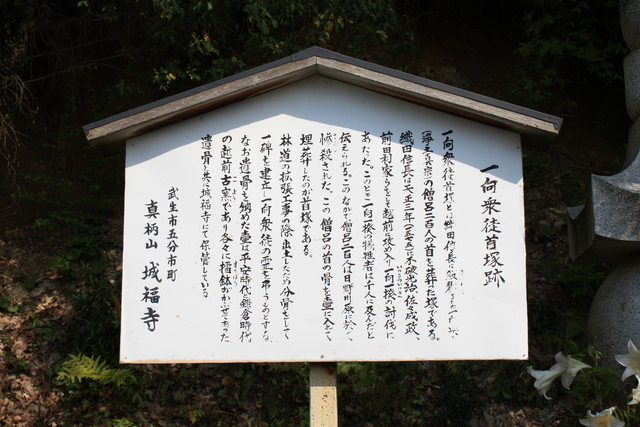 一向衆徒首塚跡
一向衆徒首塚とは織田信長に殺
(浄土真宗)の僧呂二百人の首を葬た塚である。
織田信長は天正三年(一五七五)に成政、
前田利家らをして越前に攻め入り一向一揆の討伐に
あたった。このとき一向一揆の犠牲者は千人に及んだと
伝えられる。このなかで僧呂二百人は日野川原に於いて
惨殺された。この僧呂の首の骨を壷に入れて
埋葬したのが首塚である。
林道の拡張工事の際出土したため分骨をして
一碑を建立一向衆徒の霊を弔うものとする。
なお遺骨を納めた壷は平安時代鎌倉時代
の越前古窯であり各々に擂鉢がかぶせてあった
遺骨と共に城福寺にて保管している
武生市五分市町
真柄山 城福寺